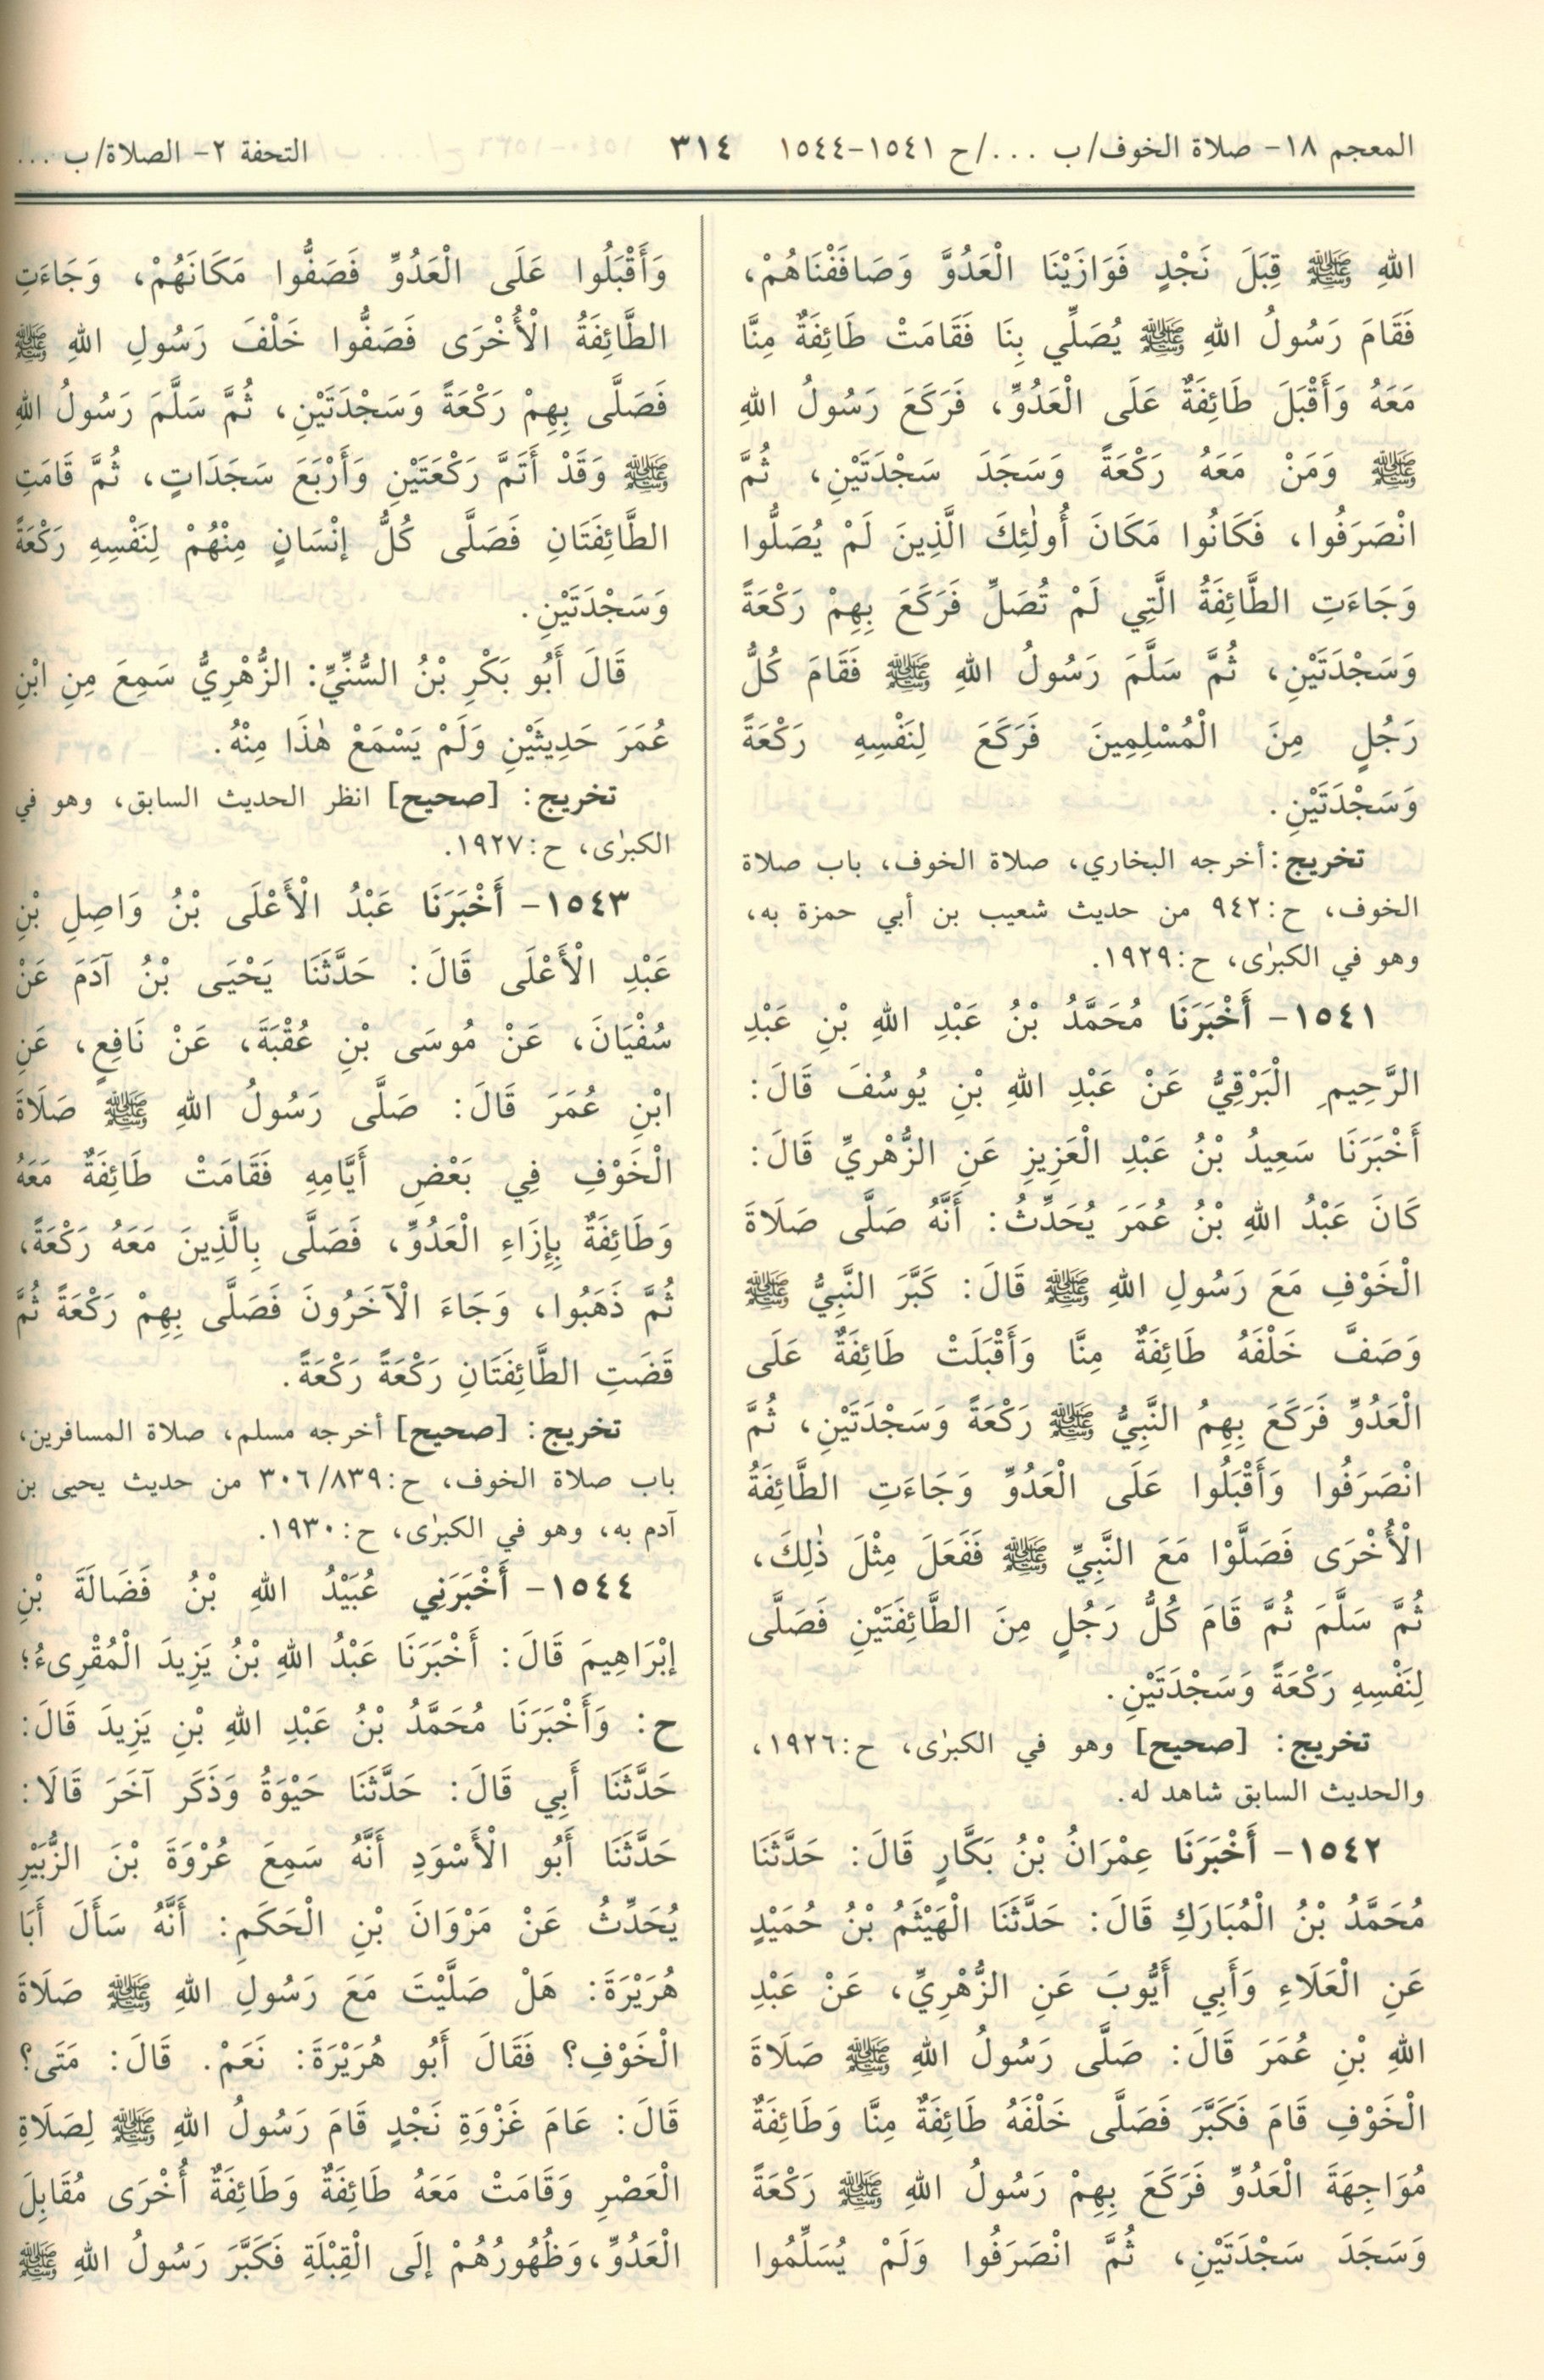 المعجم ١٨- صلاة الخوف/ب .../ح ١٥٤١-١٥٤٤ ٣١٤ التحفة ٢- الصلاة/ب ...
اللهِ ﷺ قِبَلَ نَجْدٍ فَوَازَيْنَا الْعَدُوَّ وَصَافَفْنَاهُمْ،
فَقَامَ رَسُولُ اللهِ ﷺ يُصَلِّي بِنَا فَقَامَتْ طَائِفَةٌ مِنَّا
مَعَهُ وَأَقْبَلَ طَائِفَةٌ عَلَى الْعَدُوِّ، فَرَكَعَ رَسُولُ اللهِ
ﷺ وَمَنْ مَعَهُ رَكْعَةً وَسَجَدَ سَجْدَتَيْنِ، ثُمَّ
انْصَرَفُوا، فَكَانُوا مَكَانَ أُولٰئِكَ الَّذِينَ لَمْ يُصَلُّوا
وَجَاءَتِ الطَّائِفَةُ الَّتِي لَمْ تُصَلِّ فَرَكَعَ بِهِمْ رَكْعَةً
وَسَجْدَتَيْنِ، ثُمَّ سَلَّمَ رَسُولُ اللهِ ﷺ فَقَامَ كُلُّ
رَجُلٍ مِنَ الْمُسْلِمِينَ فَرَكَعَ لِنَفْسِهِ رَكْعَةً
وَسَجْدَتَيْنِ.
تخريج: أخرجه البخاري، صلاة الخوف، باب صلاة
الخوف، ح:٩٤٢ من حديث شعيب بن أبي حمزة به،
وهو في الكبرٰى، ح:١٩٢٩.
١٥٤١- أَخْبَرَنَا مُحَمَّدُ بْنُ عَبْدِ اللهِ بْنِ عَبْدِ
الرَّحِيمِ الْبَرْقِيُّ عَنْ عَبْدِ اللهِ بْنِ يُوسُفَ قَالَ:
أَخْبَرَنَا سَعِيدُ بْنُ عَبْدِ الْعَزِيزِ عَنِ الزُّهْرِيِّ قَالَ:
كَانَ عَبْدُ اللهِ بْنُ عُمَرَ يُحَدِّثُ: أَنَّهُ صَلَّى صَلَاةَ
الْخَوْفِ مَعَ رَسُولِ اللهِ ﷺ قَالَ: كَبَّرَ النَّبِيُّ ﷺ
وَصَفَّ خَلْفَهُ طَائِفَةٌ مِنَّا وَأَقْبَلَتْ طَائِفَةٌ عَلَى
الْعَدُوِّ فَرَكَعَ بِهِمُ النَّبِيُّ ﷺ رَكْعَةً وَسَجْدَتَيْنِ، ثُمَّ
انْصَرَفُوا وَأَقْبَلُوا عَلَى الْعَدُوِّ وَجَاءَتِ الطَّائِفَةُ
الْأُخْرَى فَصَلَّوْا مَعَ النَّبِيِّ ﷺ فَفَعَلَ مِثْلَ ذٰلِكَ،
ثُمَّ سَلَّمَ ثُمَّ قَامَ كُلُّ رَجُلٍ مِنَ الطَّائِفَتَيْنِ فَصَلَّى
لِنَفْسِهِ رَكْعَةً وَسَجْدَتَيْنِ.
تخريج: [صحيح] وهو في الكبرٰى، ح:١٩٢٦،
والحديث السابق شاهد له.
١٥٤٢- أَخْبَرَنَا عِمْرَانُ بْنُ بَكَّارٍ قَالَ: حَدَّثَنَا
مُحَمَّدُ بْنُ الْمُبَارَكِ قَالَ: حَدَّثَنَا الْهَيْثَمُ بْنُ حُمَيْدٍ
عَنِ الْعَلَاءِ وَأَبِي أَيُّوبَ عَنِ الزُّهْرِيِّ، عَنْ عَبْدِ
اللهِ بْنِ عُمَرَ قَالَ: صَلَّى رَسُولُ اللهِ ﷺ صَلَاةَ
الْخَوْفِ قَامَ فَكَبَّرَ فَصَلَّى خَلْفَهُ طَائِفَةٌ مِنَّا وَطَائِفَةٌ
مُوَاجِهَةَ الْعَدُوِّ فَرَكَعَ بِهِمْ رَسُولُ اللهِ ﷺ رَكْعَةً
وَسَجَدَ سَجْدَتَيْنِ، ثُمَّ انْصَرَفُوا وَلَمْ يُسَلِّمُوا
وَأَقْبَلُوا عَلَى الْعَدُوِّ فَصَفُّوا مَكَانَهُمْ، وَجَاءَتِ
الطَّائِفَةُ الْأُخْرَى فَصَفُّوا خَلْفَ رَسُولِ اللهِ ﷺ
فَصَلَّى بِهِمْ رَكْعَةً وَسَجْدَتَيْنِ، ثُمَّ سَلَّمَ رَسُولُ اللهِ
ﷺ وَقَدْ أَتَمَّ رَكْعَتَيْنِ وَأَرْبَعَ سَجَدَاتٍ، ثُمَّ قَامَتِ
الطَّائِفَتَانِ فَصَلَّى كُلُّ إنْسَانٍ مِنْهُمْ لِنَفْسِهِ رَكْعَةً
وَسَجْدَتَيْنِ.
قَالَ أَبُو بَكْرِ بْنُ السُّنِّيِّ: الزُّهْرِيُّ سَمِعَ مِنِ ابْنِ
عُمَرَ حَدِيثَيْنِ وَلَمْ يَسْمَعْ هٰذَا مِنْهُ.
تخريج: [صحيح] انظر الحديث السابق، وهو في
الكبرٰى، ح:١٩٢٧.
١٥٤٣- أَخْبَرَنَا عَبْدُ الْأَعْلَى بْنُ وَاصِلِ بْنِ
عَبْدِ الْأَعْلَى قَالَ: حَدَّثَنَا يَحْيَى بْنُ آدَمَ عَنْ
سُفْيَانَ، عَنْ مُوسَى بْنِ عُقْبَةَ، عَنْ نَافِعٍ، عَنِ
ابْنِ عُمَرَ قَالَ: صَلَّى رَسُولُ اللهِ ﷺ صَلَاةَ
الْخَوْفِ فِي بَعْضِ أَيَّامِهِ فَقَامَتْ طَائِفَةٌ مَعَهُ
وَطَائِفَةٌ بِإِزَاءِ الْعَدُوِّ، فَصَلَّى بِالَّذِينَ مَعَهُ رَكْعَةً،
ثُمَّ ذَهَبُوا، وَجَاءَ الْآخَرُونَ فَصَلَّى بِهِمْ رَكْعَةً ثُمَّ
قَضَتِ الطَّائِفَتَانِ رَكْعَةً رَكْعَةً.
تخريج: [صحيح] أخرجه مسلم، صلاة المسافرين،
باب صلاة الخوف، ح:٣٠٦/٨٣٩ من حديث يحيى بن
آدم به، وهو في الكبرٰى، ح:١٩٣٠.
١٥٤٤- أَخْبَرَنِي عُبَيْدُ اللهِ بْنُ فَضَالَةَ بْنِ
إبْرَاهِيمَ قَالَ: أَخْبَرَنَا عَبْدُ اللهِ بْنُ يَزِيدَ الْمُقْرِىءُ؛
ح: وَأَخْبَرَنَا مُحَمَّدُ بْنُ عَبْدِ اللهِ بْنِ يَزِيدَ قَالَ:
حَدَّثَنَا أَبِي قَالَ: حَدَّثَنَا حَيْوَةُ وَذَكَرَ آخَرَ قَالَا:
حَدَّثَنَا أَبُو الْأَسْوَدِ أَنَّهُ سَمِعَ عُرْوَةَ بْنَ الزُّبَيْرِ
يُحَدِّثُ عَنْ مَرْوَانَ بْنِ الْحَكَمِ: أَنَّهُ سَأَلَ أَبَا
هُرَيْرَةَ: هَلْ صَلَّيْتَ مَعَ رَسُولِ اللهِ ﷺ صَلَاةَ
الْخَوْفِ؟ فَقَالَ أَبُو هُرَيْرَةَ: نَعَمْ. قَالَ: مَتَى؟
قَالَ: عَامَ غَزْوَةِ نَجْدٍ قَامَ رَسُولُ اللهِ ﷺ لِصَلَاةِ
الْعَصْرِ وَقَامَتْ مَعَهُ طَائِفَةٌ وَطَائِفَةٌ أُخْرَى مُقَابِلَ
الْعَدُوِّ، وَظُهُورُهُمْ إلَى الْقِبْلَةِ فَكَبَّرَ رَسُولُ اللهِ ﷺ